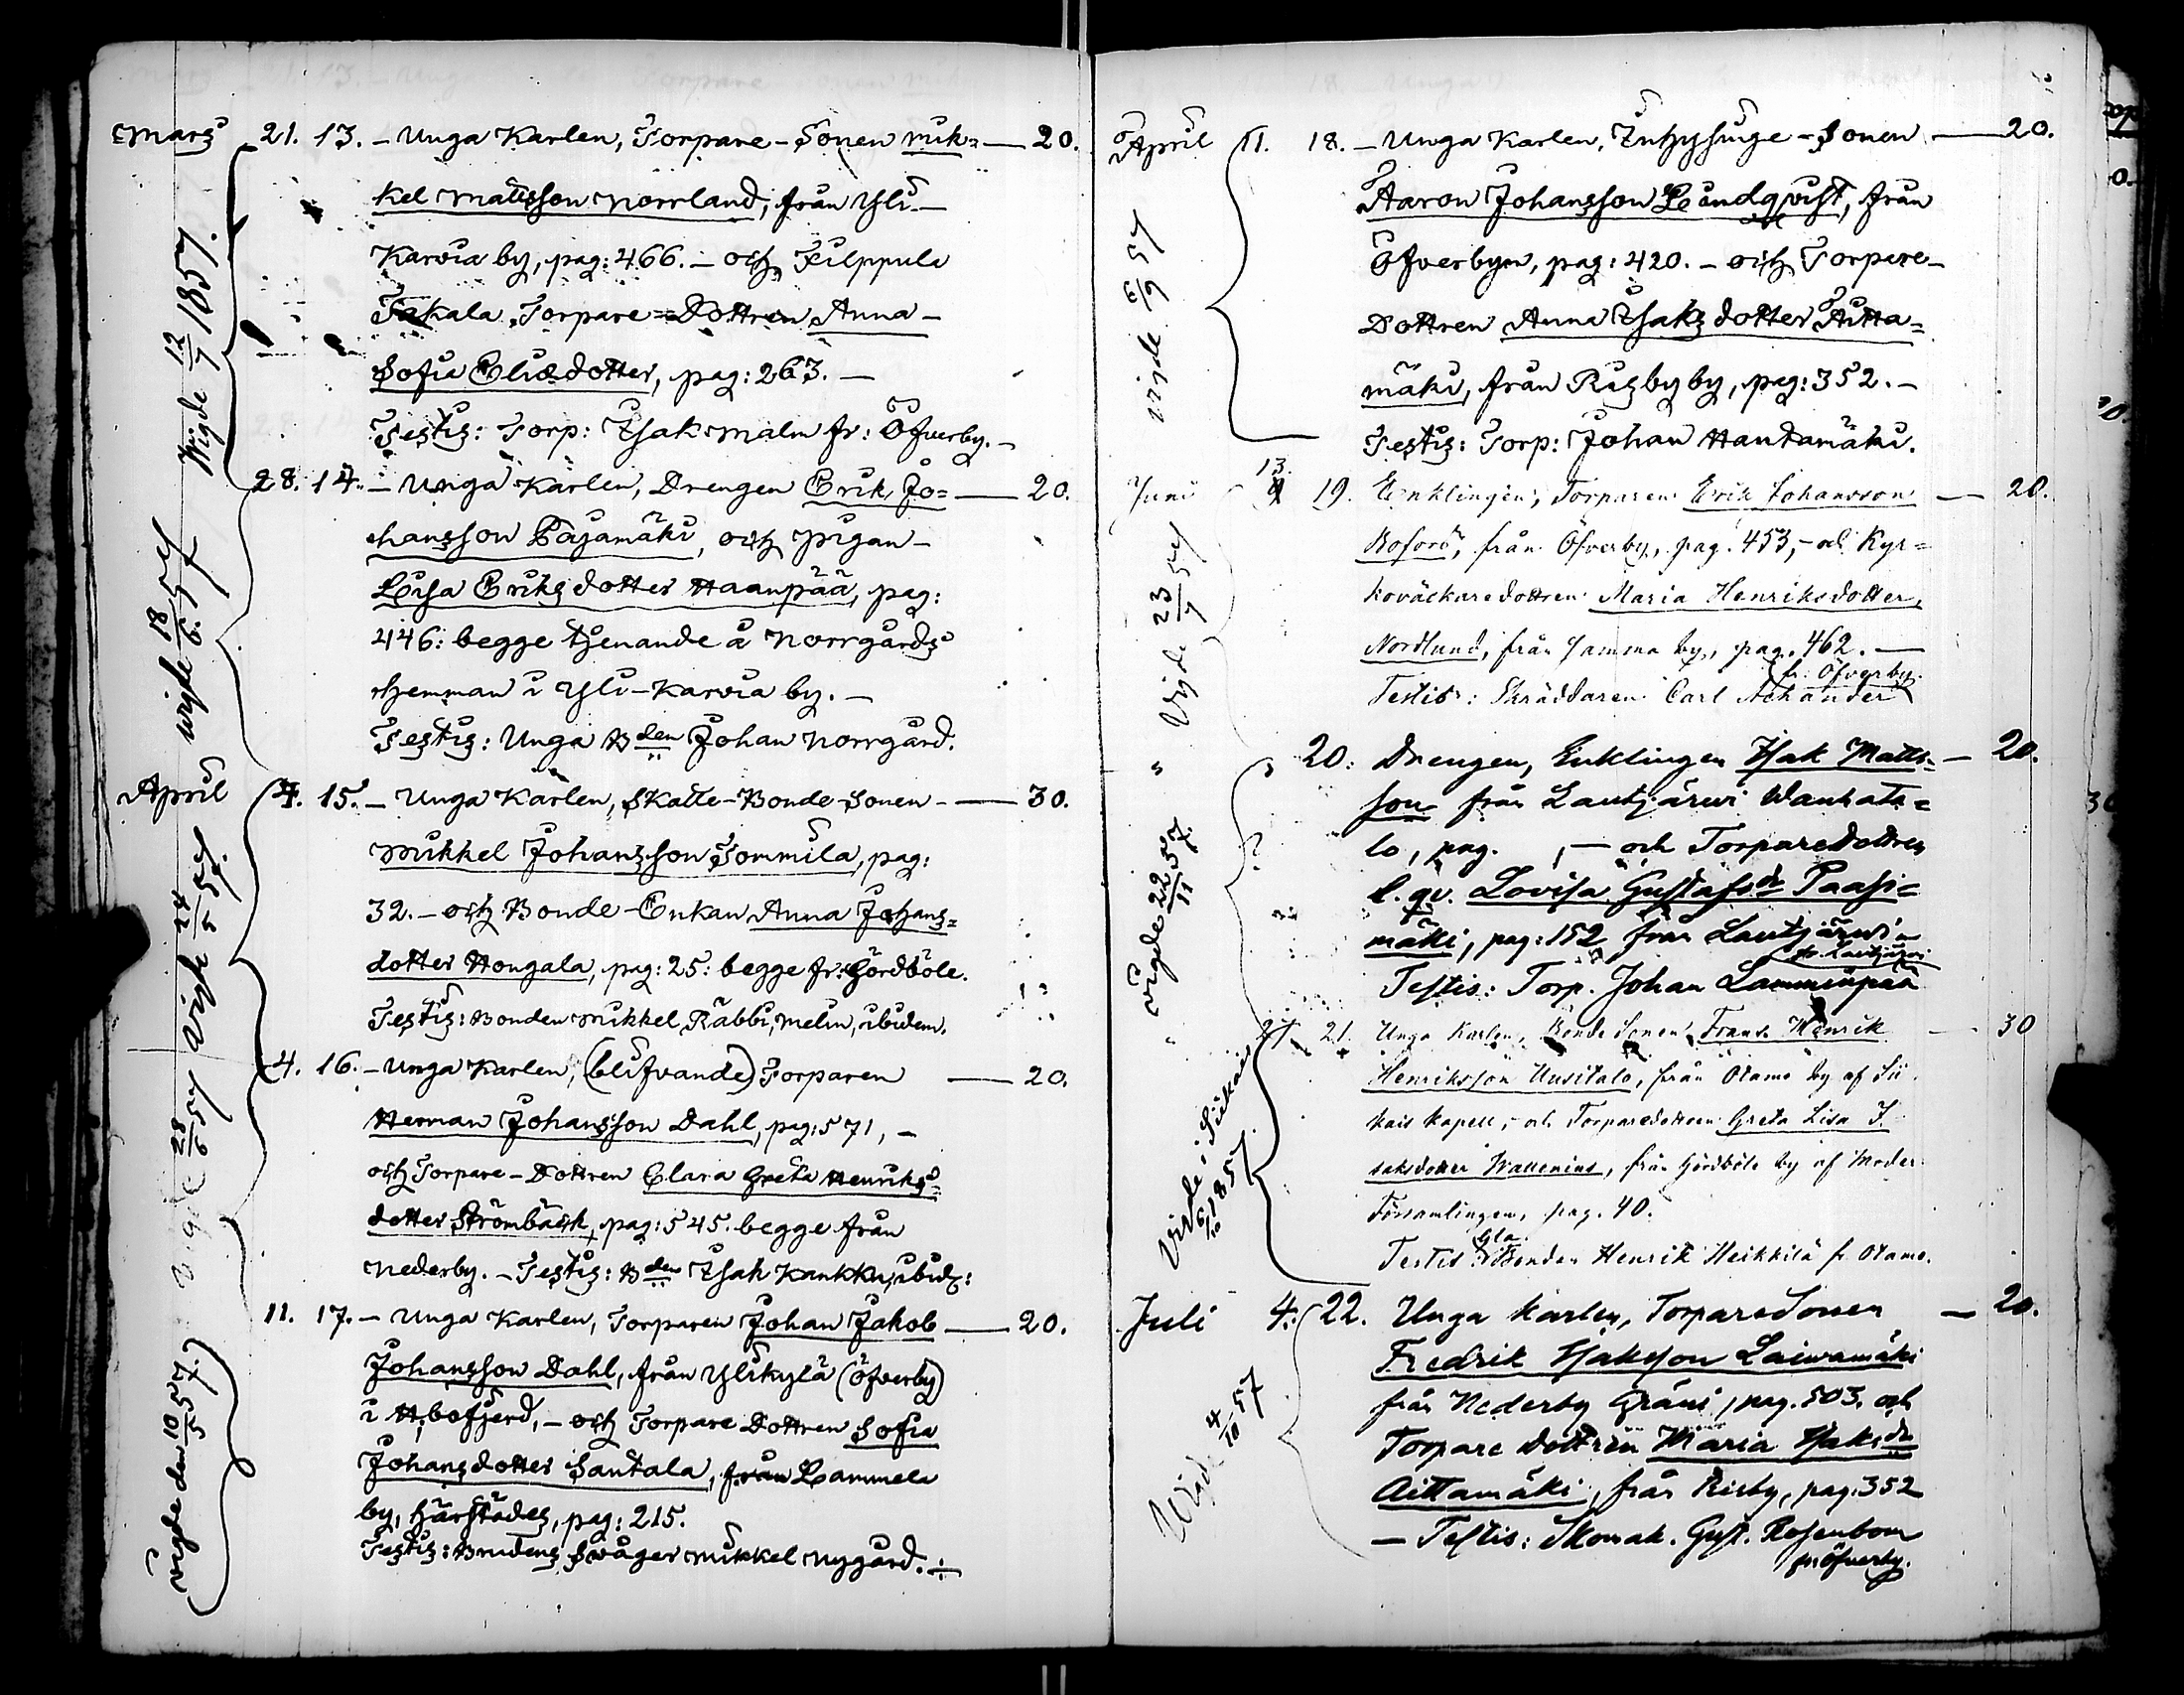 Mars 21. 13. – Unga Karlen, Torpare-Sonen Mik= — 20.
kel Mattsson Norrland, från Yli-
Karvia by, pag: 466. – och Filppula
Torpare=Dottren Anna-
Sofia Eliædotter, pag: 263. –
Testis: Torp: Isak Malm fr: Öfverby. –
Wigde 12/7 1857.
28. 14. – Unga Karlen, Drengen Erik Jo= — 20.
hansson Pajamäki, och Pigan-
Lisa Eriksdotter Haanpää, pag:
446: begge tjenande å Norrgårds
Hemman i Yli-Karvia by. –
Testis: Unga Bden Johan Norrgård.
wigde 18/6 57
April 4. 15. – Unga Karlen, Skatte-Bonde-Sonen – — 30.
Mikkel Johansson Tommila, pag:
32. – och Bonde-Enkan Anna Johans=
dotter Hongala, pag: 25: begge fr: Gördböle.
Testis: Bonden Mikkel Räbbi, ibidem.
wigde 24/5 57
4. 16. – Unga Karlen, (blifvande) Torparen — 20.
Herman Johansson Dahl, pag: 571, –
och Torpare-Dottren Clara Greta Henriks=
dotter Strömbäck, pag: 545. begge från
Nederby. – Testis: Bden Isak Kankku, ibid:
Vigde 28/6 57
11. 17. – Unga Karlen, Torparen Johan Jakob — 20.
Johansson Dahl, från Ylikylä (Öfverby)
i Hvbofjerd, – och Torpare Dottren Sofia
Johansdotter Santala, från Lammela
by, härstädes, pag: 215.
Testis: Brudens Svåger Mikkel Nygård.
vigde den 10/5 57.
April 11. 18. – Unga Karlen, Inhysinge-Sonen — 20.
Aaron Johansson Lindqvist, från
Öfverbyn, pag: 420. – och Torpare-
Dottren Anna Isaks dotter Aitta=
mäki, från Risby by, pag: 352. –
Testis: Torp: Johan Hautamäki.
vigde 6/9 57
Juni 13. 19. Enklingen, Torparen Erik Johansson — 20.
Boforś, från Öfverby, pag. 453, – och Kyr=
koväckaredottren Maria Henriksdotter,
Nordlund, från samma by, pag. 462. —
fr. Öfverby.
Testis: Skräddaren Carl Achander
Vigde 23/7 57
" 20: Drengen, Enklingen Isak Matts- — 20.
son från Lautjärwi Wanhata=
lo, pag. , – och Torparedottren
l. qv. Lovisa Gustafsdr Paasi=
mäki, pag: 152 från Lautjärwi
fr. Lautjärwi
Testis: Torp. Johan Lamminpää
vigde 22/11 57.
" 27. 21. Unga Karlen, Bonde Sonen, Frans Henrik — 30
Henriksson Uusitalo, från Otamo by af Sii
kais Kapell, – och Torparedottren Greta Lisa I-
saksdotter Wallenius, från Gördböle by af Moder
Församlingen, pag. 40.
Gla.
Testis: Bonden Henrik Heikkilä fr. Otamo.
Vigde i Siikais 6/10 1857.
Juli 4. 22. Unga karlen, Torparesonen — 20.
Fredrik Isaksson Laiwamäki
från Nederby Gräns, pag. 503. och
Torpare dottren Maria Isaksdr
Aittamäki, från Risby, pag. 352
— Testis: Skomak. Gust. Rosenbom
fr Öfverby.
Wigde 4/10 57